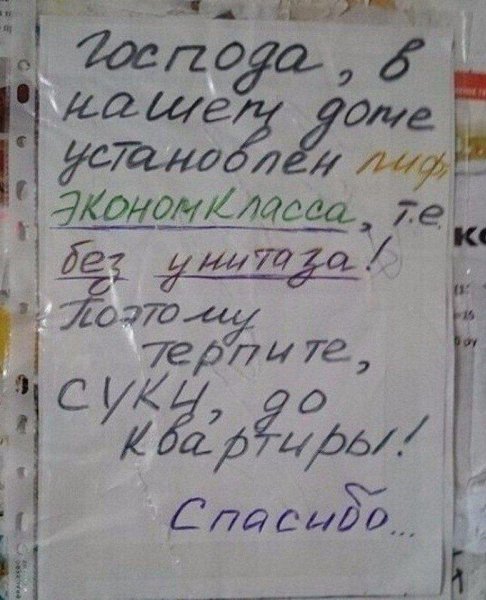 Господа, в
нашем доме
установлен лифт
экономкласса, т.е.
без унитаза!
Поэтому
терпите,
суки, до
квартиры!
Спасибо...